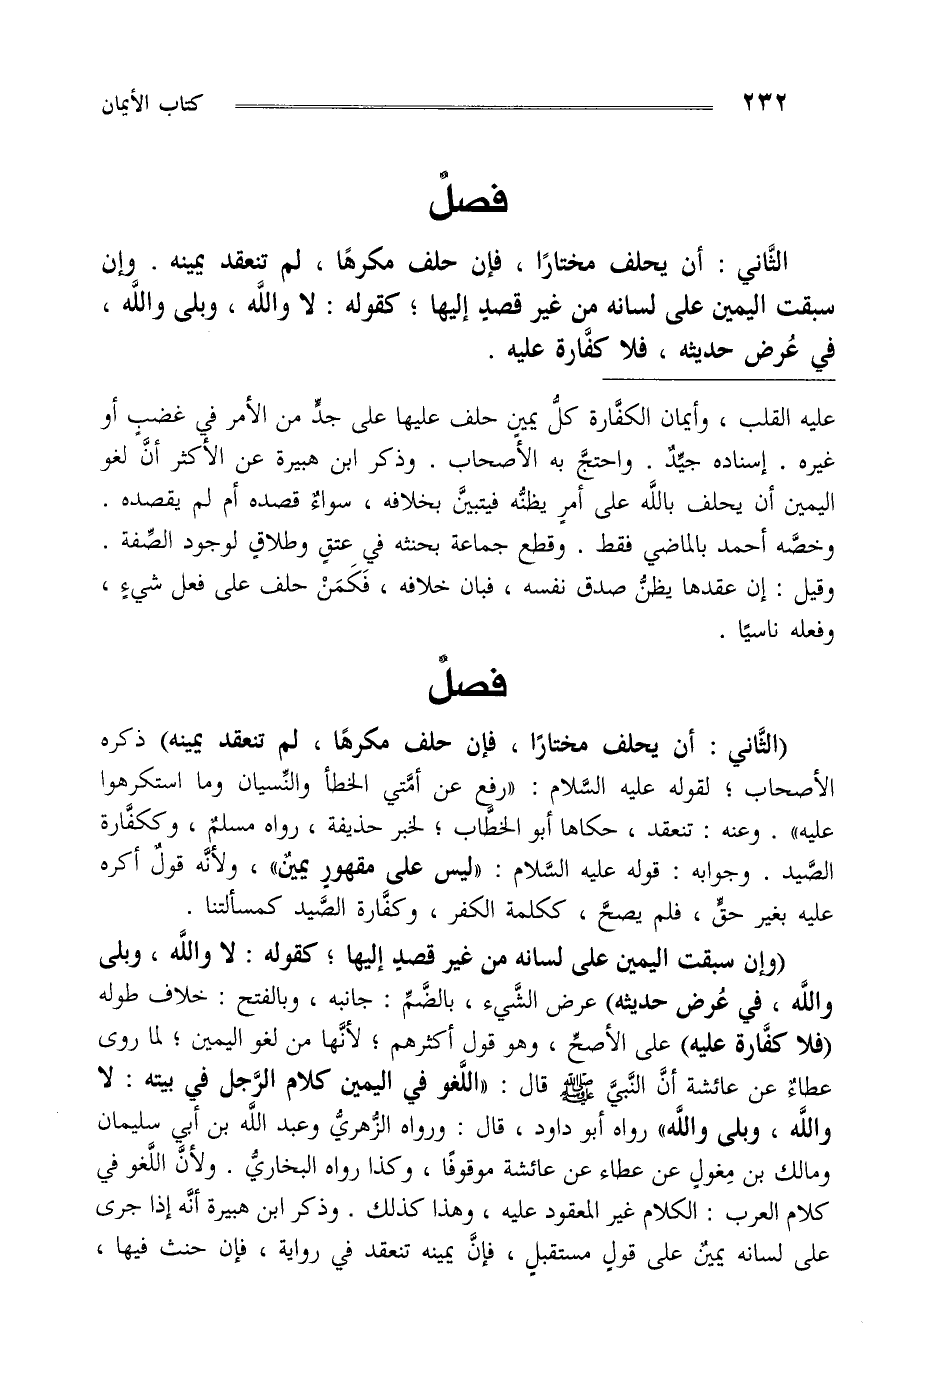 ٢٣٢ كتاب الأيمان
فصلٌ
الثَّاني : أن يحلف مختارًا ، فإن حلف مكرهًا ، لم تنعقد يمينه . وإن
سبقت اليمين على لسانه من غير قصدٍ إليها ؛ كقوله : لا واللَّه ، وبلى واللَّه ،
في عُرض حديثه ، فلا كفَّارة عليه .
عليه القلب ، وأيمان الكفَّارة كلُّ يمينٍ حلف عليها على جدٍّ من الأمر في غضبٍ أو
غيره . إسناده جيِّدٌ . واحتجَّ به الأصحاب . وذكر ابن هبيرة عن الأكثر أنَّ لغو
اليمين أن يحلف باللَّه على أمرٍ يظنُّه فيتبينَّ بخلافه ، سواءٌ قصده أم لم يقصده .
وخصَّه أحمد بالماضي فقط . وقطع جماعة بحنثه في عتقٍ وطلاقٍ لوجود الصِّفة .
وقيل : إن عقدها يظنُّ صدق نفسه ، فبان خلافه ، فَكَمَنْ حلف على فعل شيءٍ ،
وفعله ناسيًا .
فصلٌ
(الثَّاني : أن يحلف مختارًا ، فإن حلف مكرهًا ، لم تنعقد يمينه) ذكره
الأصحاب ؛ لقوله عليه السَّلام : «رفع عن أمَّتي الخطأ والنِّسيان وما استكرهوا
عليه» . وعنه : تنعقد ، حكاها أبو الخطَّاب ؛ لخبر حذيفة ، رواه مسلمٌ ، وككفَّارة
الصَّيد . وجوابه : قوله عليه السَّلام : «ليس على مقهورٍ يمينٌ» ، ولأنَّه قولٌ أكره
عليه بغير حقٍّ ، فلم يصحَّ ، ككلمة الكفر ، وكفَّارة الصَّيد كمسألتنا .
(وإن سبقت اليمين على لسانه من غير قصدٍ إليها ؛ كقوله : لا واللَّه ، وبلى
واللَّه ، في عُرض حديثه) عرض الشَّيء ، بالضَّمِّ : جانبه ، وبالفتح : خلاف طوله
(فلا كفَّارة عليه) على الأصحِّ ، وهو قول أكثرهم ؛ لأنَّها من لغو اليمين ؛ لما روى
عطاءٌ عن عائشة أنَّ النَّبيَّ ﷺ قال : «اللَّغو في اليمين كلام الرَّجل في بيته : لا
واللَّه ، وبلى واللَّه» رواه أبو داود ، قال : ورواه الزُّهريُّ وعبد اللَّه بن أبي سليمان
ومالك بن مِغولٍ عن عطاء عن عائشة موقوفًا ، وكذا رواه البخاريُّ . ولأنَّ اللَّغو في
كلام العرب : الكلام غير المعقود عليه ، وهذا كذلك . وذكر ابن هبيرة أنَّه إذا جرى
على لسانه يمينٌ على قولٍ مستقبلٍ ، فإنَّ يمينه تنعقد في رواية ، فإن حنث فيها ،